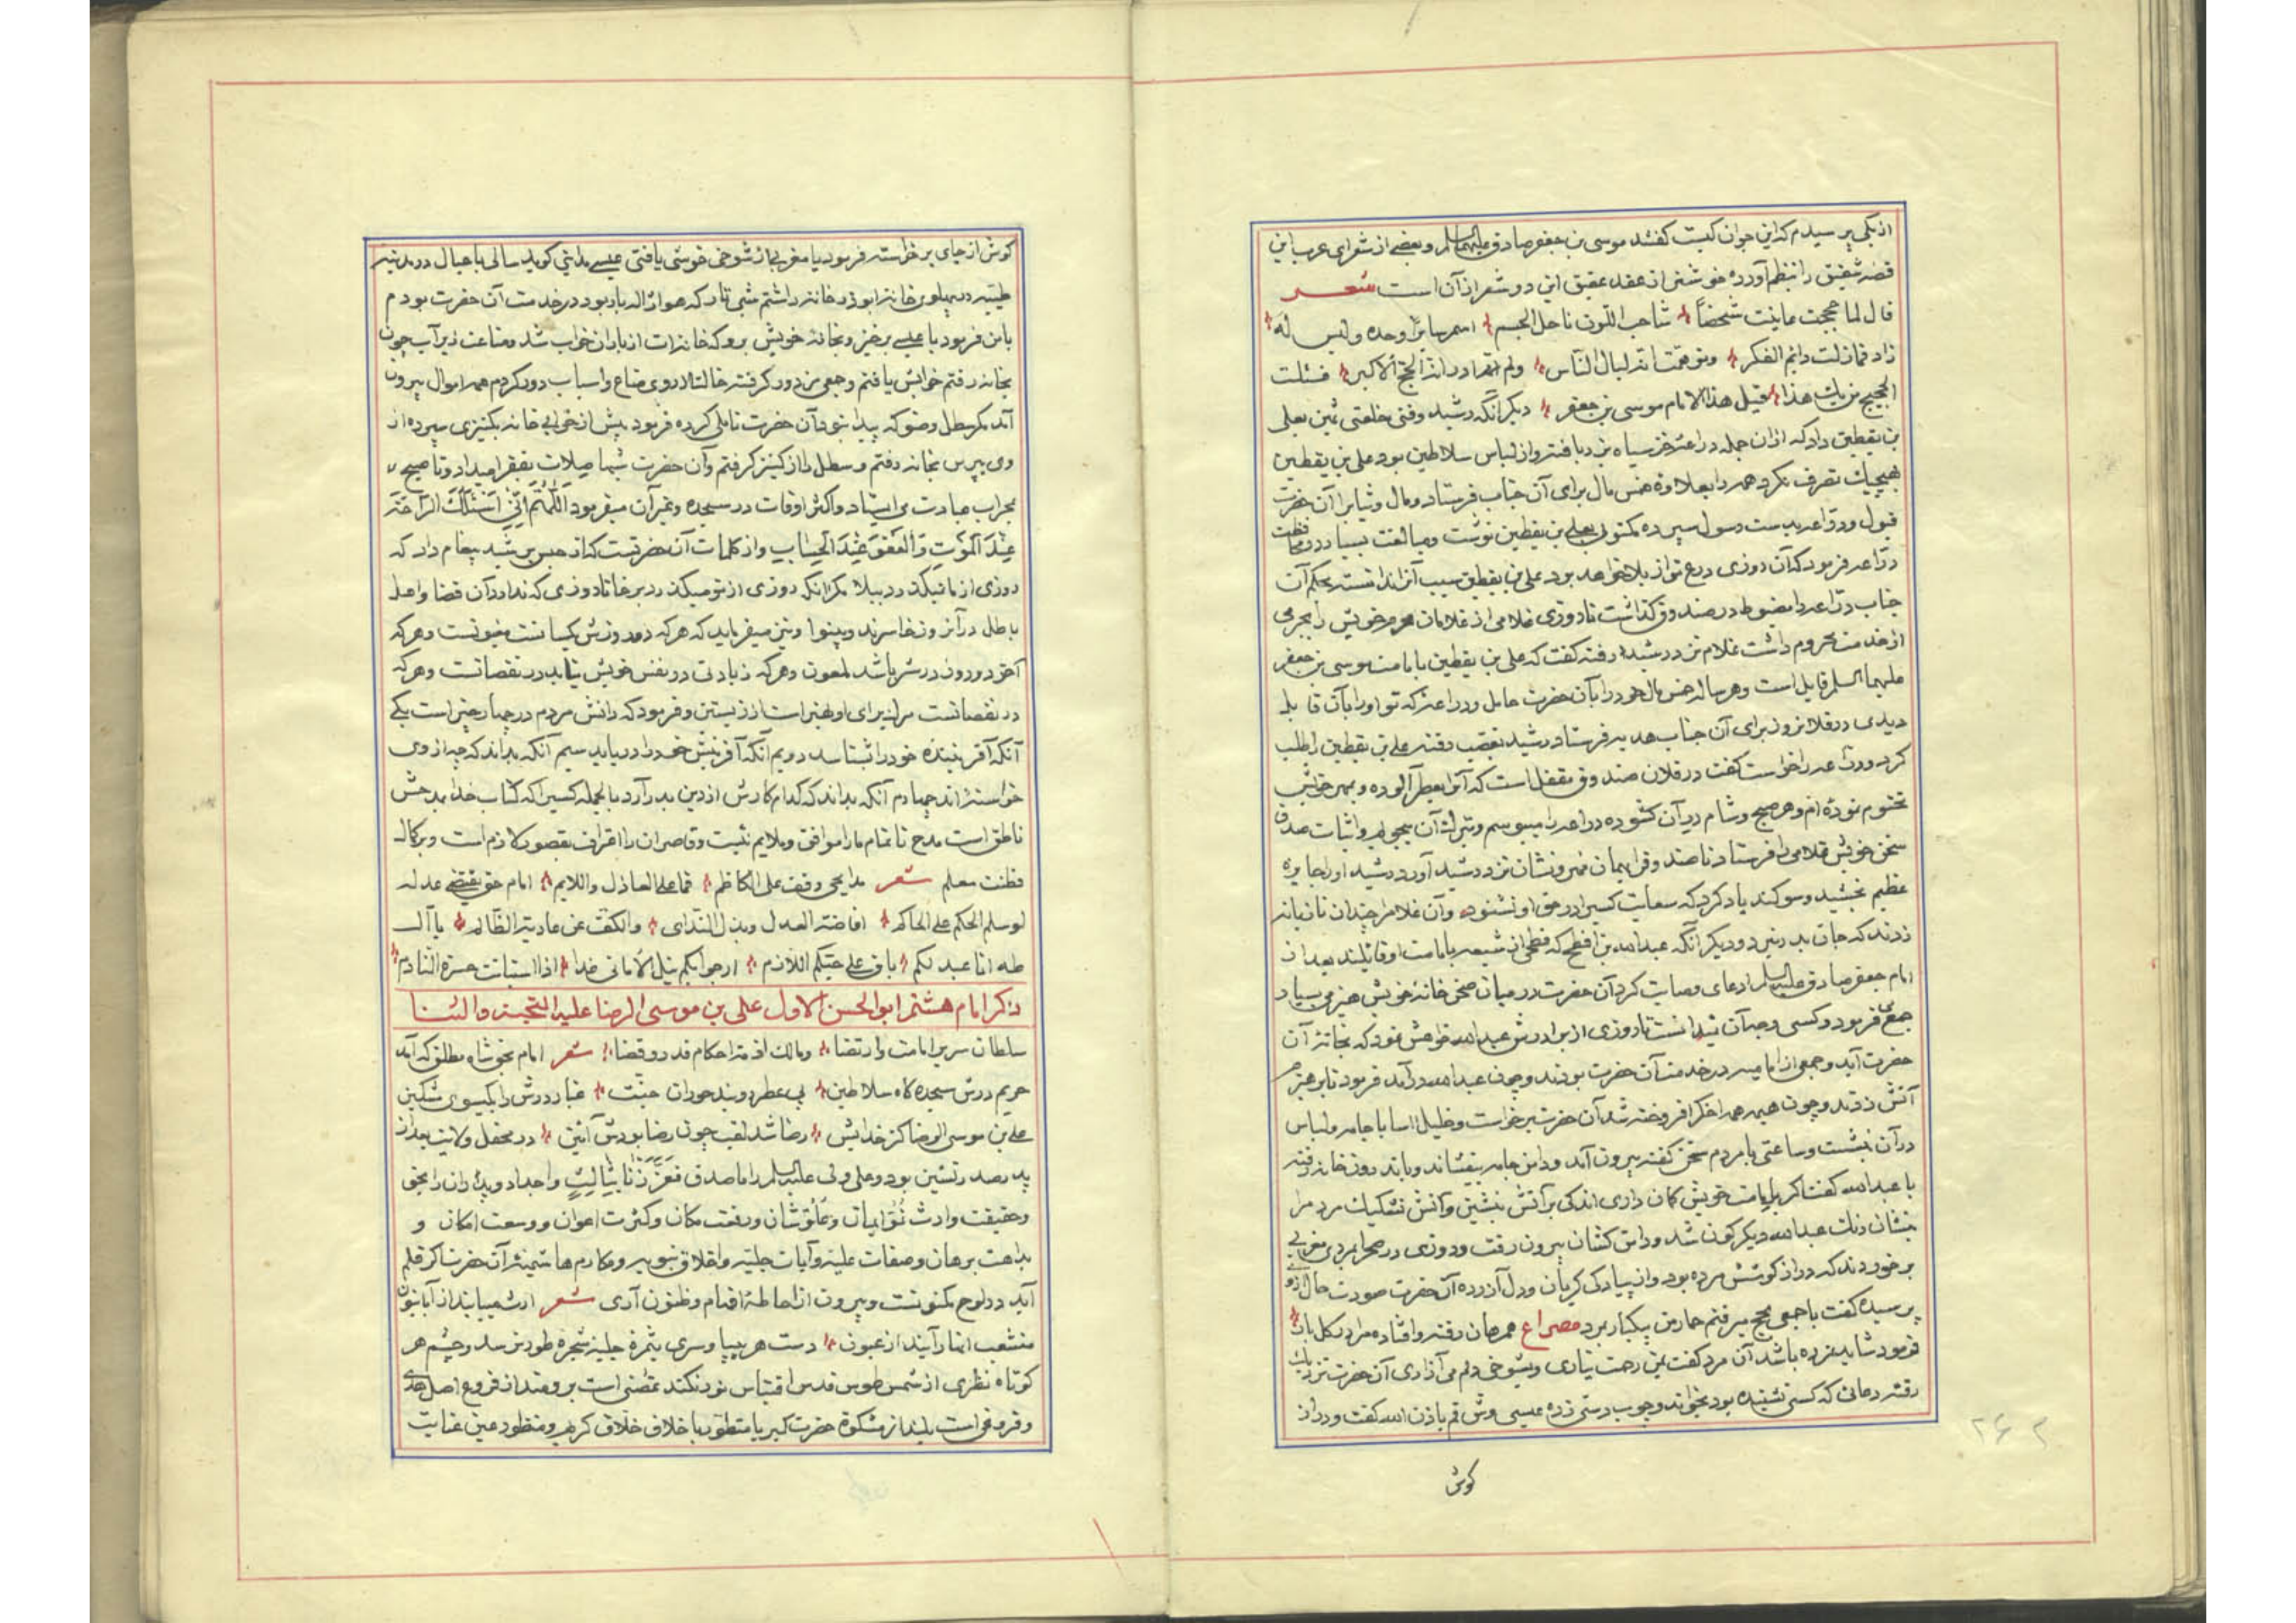 از یکی پرسیدم که این جوان کیست گفتند موسی بن جعفر صادق علیهما السلم و بعضی از شعرای عرب این
قصه شقیق را بنظم آورده خوشتر از عقد عقیق این دو شعر از آن است شعر
قال لما حججت عاینت شخصا شاحب اللون ناحل الجسم اسمر سایرا وحده ولیس له
زاد فمازلت دائم الفکر وتوهمت انه لیال الناس ولم ادر انه الحج الاکبر فسئلت
الحجیج من یك هذا قیل هذا الامام موسی بن جعفر دیگر آنکه رشید وقتی خلعتی ثمین بعلی
بن یقطین داد که از آن جمله دراعه خز سیاه زر بافته و از لباس سلاطین بود علی بن یقطین
بهیچیك تصرف نکرد همه را بعلاوه خمس مال برای آن جناب فرستاد و مال و ثیاب را آن حضرت
قبول و دراعه بدست رسول سپرده مکتوبی بعلی بن یقطین نوشت و مبالغت بسیار در محافظت
دراعه فرمود که آن روزی درع تو از بلا خواهد بود علی بن یقطین سبب آنرا ندانسته بحکم آن
جناب دراعه را مضبوط در صندوق گذاشت تا روزی غلامی از غلامان خویش را بجرمی
از خدمت محروم داشت غلام نزد رشید رفته گفت که علی بن یقطین بامامت موسی بن جعفر
علیهما السلم قایل است و هر ساله خمس مال خود را بآن حضرت حامل و دراعه که تو او را بآن قابل
دیدی در فلان روز برای آن جناب هدیه فرستاد رشید بغضب رفته علی بن یقطین را طلب
کرد و دراعه را خواست گفت در فلان صندوق مقفل است که آنرا بعطر آلوده و بمهر خویش
مختوم نموده ام و هر صبح و شام در آن گشوده دراعه را میبوسم و تبرک آن میجویم و اثبات صدق
سخن خویش غلامی را فرستاد تا صندوق را بهمان مهر و نشان نزد رشید آورد رشید او را جایزه
عظیم بخشید و سوگند یاد کرد که سعایت کسی را در حق او نشنود و آن غلام را چندان تازیانه
زدند که جان بدر نبرد و دیگر آنکه عبدالله بن افطح که فطحی از شیعه بامامت او قائلند بعد از
امام جعفر صادق علیه السلم ادعای وصایت کرد آن حضرت در میان صحن خانه خویش هیزم بسیار
جمع فرمود و کسی وجه آن ندانست تا روزی از برادرش عبدالله خواهش نمود که بخانه آن
حضرت آید و جمعی از امامیه در خدمت آن حضرت بودند و چون عبدالله در آمد فرمود تا بر هیزم
آتش زدند و چون هیمه همه اخگر افروخته شد آن حضرت برخواست و خلیل اسا با جامه و لباس
در آن بنشست و ساعتی با مردم سخن گفته بیرون آمد و دامن جامه بیفشاند و باندرون خانه رفته
با عبدالله گفت اگر بامامت خویش گمان داری اندکی بر آتش بنشین و آتش تشکیك مردم را
بنشان رنگ عبدالله دیگرگون شد و دامن کشان بیرون رفت و روزی در صحرا بمردی مغربی
برخوردند که دراز گوشش مرده بود و از پیادگی گریان و دل آزرده آن حضرت صورت حال از او
پرسیده گفت با جمعی بحج میرفتم حمار من بیکبار بمرد مصراع همرهان رفته و افتاده مرا در گل بار
فرمود شاید نمرده باشد آن مرد گفت بمن رحمت نیاری و بشوخی دلم می آزاری آن حضرت نزدیك
رفته دعائی که کسی نشنیده بود بخواند و چوب دستی زده عیسی وش قم باذن الله گفت و دراز
گوش
۲۶۲
گوش از جای برخواسته فرمود یا مغربی از شوخی خوشی یافتی عیسی مدینی گوید سالی با عیال در مدینه
طیبه در پهلوی خانه ابوذر خانه داشتم شبی تار که هوا ژاله بار بود در خدمت آن حضرت بودم
بامن فرمود یا عیسی برخیز و بخانه خویش برو که خانه ات از باران خراب شد و متاعت زیر آب چون
بخانه رفتم خرابش یافتم و جمعی مزدور گرفته خاک را از روی متاع و اسباب دور کردم همه اموال بیرون
آمد مگر سطل وضو که پیدا نبود آن حضرت تاملی کرده فرمود پیش از خرابی خانه بکنیزی سپرده از
وی بپرس بخانه رفتم و سطل را از کنیز گرفتم و آن حضرت شبها صلات بفقرا میداد و تا صبح
بمحراب عبادت می ایستاد و اکثر اوقات در سجده و غیر آن میفرمود اَللّٰهُمَّ اِنّی اَسْئَلُكَ الرّاحَةَ
عِنْدَ الْمَوْتِ وَالْعَفْوَ عِنْدَ الْحِسابِ و از کلمات آن حضرتست که از حبس برشید پیغام داد که
روزی از ما نیگذرد ببلا مگر آنکه روزی از تو میگذرد برخا تا روزی که ندارد آن قضا و اهل
باطل در آنروز خاسرند و بینوا و نیز میفرماید که هر که دو روزش یکسانست مغبونست و هر که
آخر دو روزه در شر باشد ملعون و هر که زیادتی در نفس خویش نیابد در نقصانست و هر که
در نقصانست مرگ برای او بهتر است از زیستن و فرمود که دانش مردم در چهار چیز است یکی
آنکه آفریننده خود را بشناسد دویم آنکه آفرینش خود را دریابد سیم آنکه بداند که چه از وی
خواسته اند چهارم آنکه بداند که کدام کارش از دین بدر آرد بالجمله کسیرا که کتاب خدا بمدحش
ناطق است مدح ناتمام ما را موافق و ملایم نیست و قاصران را اعتراف بقصور لازم است و بر کمال
فطنت معلم شعر مدایحی وقف علی الکاظم فما علی العاذل واللایم امام حق یقتضی عدله
لو سلم الحکم علی الحاکم افاضة العدل وبذل الندای والکف عن عادیة الظالم یا آل
طه انا عبد لکم باق علی حبکم اللازم ارجو بکم نیل الامانی غدا اذا استبانت حسرة النادم
ذکر امام هشتم ابو الحسن الاول علی بن موسی الرضا علیه التحیة والثنا
سلطان سریر امامت و ارتضا و مالك ازمه احکام قدر و قضا شعر امام بحق شاه مطلق که آمد
حریم درش سجده گاه سلاطین پی عطر روبند حوران جنت غبار درش را بگیسوی مشکین
علی بن موسی الرضا کز خدایش رضا شد لقب چون رضا بودش آئین در محفل ولایت بعد از
پدر صدر نشین بود و علی ولی علیه السلم را ماصدق فَعَزَّزْنا بِثالِثٍ و اجداد و پدران را بحق
و حقیقت وارث نمو ایمان و علو شان و رفعت مکان و کثرت اعوان و وسعت امکان و
بداهت برهان و صفات علیه و آیات جلیه و اخلاق نبویه و مکارم هاشمیه آن حضرت اگر قلم
آید در لوح مکنونست و بیرون از احاطه افهام و ظنون آری شعر از شمیبایند از آبا بنون
منشعب انهار آیند از عیون دست هر بیپا و سری بثمره جلیه شجره طور نرسد و چشم هر
کوتاه نظری از شمس طوس قدس اقتباس نور نکند غصنی است برومند از فروع اصل هدی
و فروغی است بلند از مشکوة حضرت کبریا متطور باخلاق خلاق کریم و منظور عین عنایت